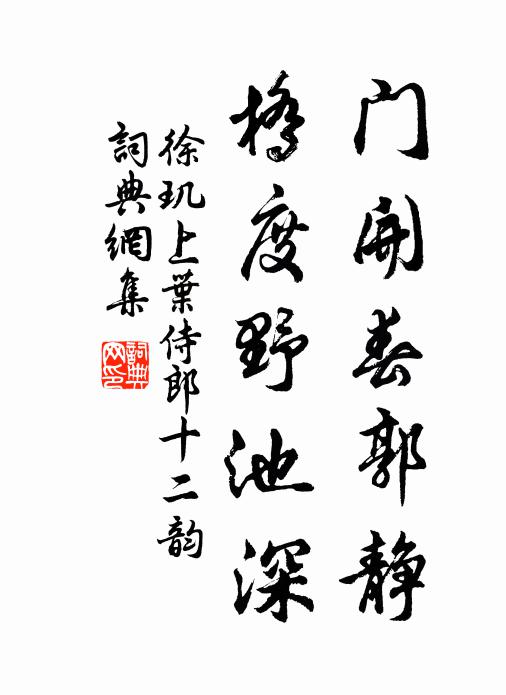 门开春郭静
桥度野池深
徐玑上葉侍郎十二韵
詞典網集
詞典网印